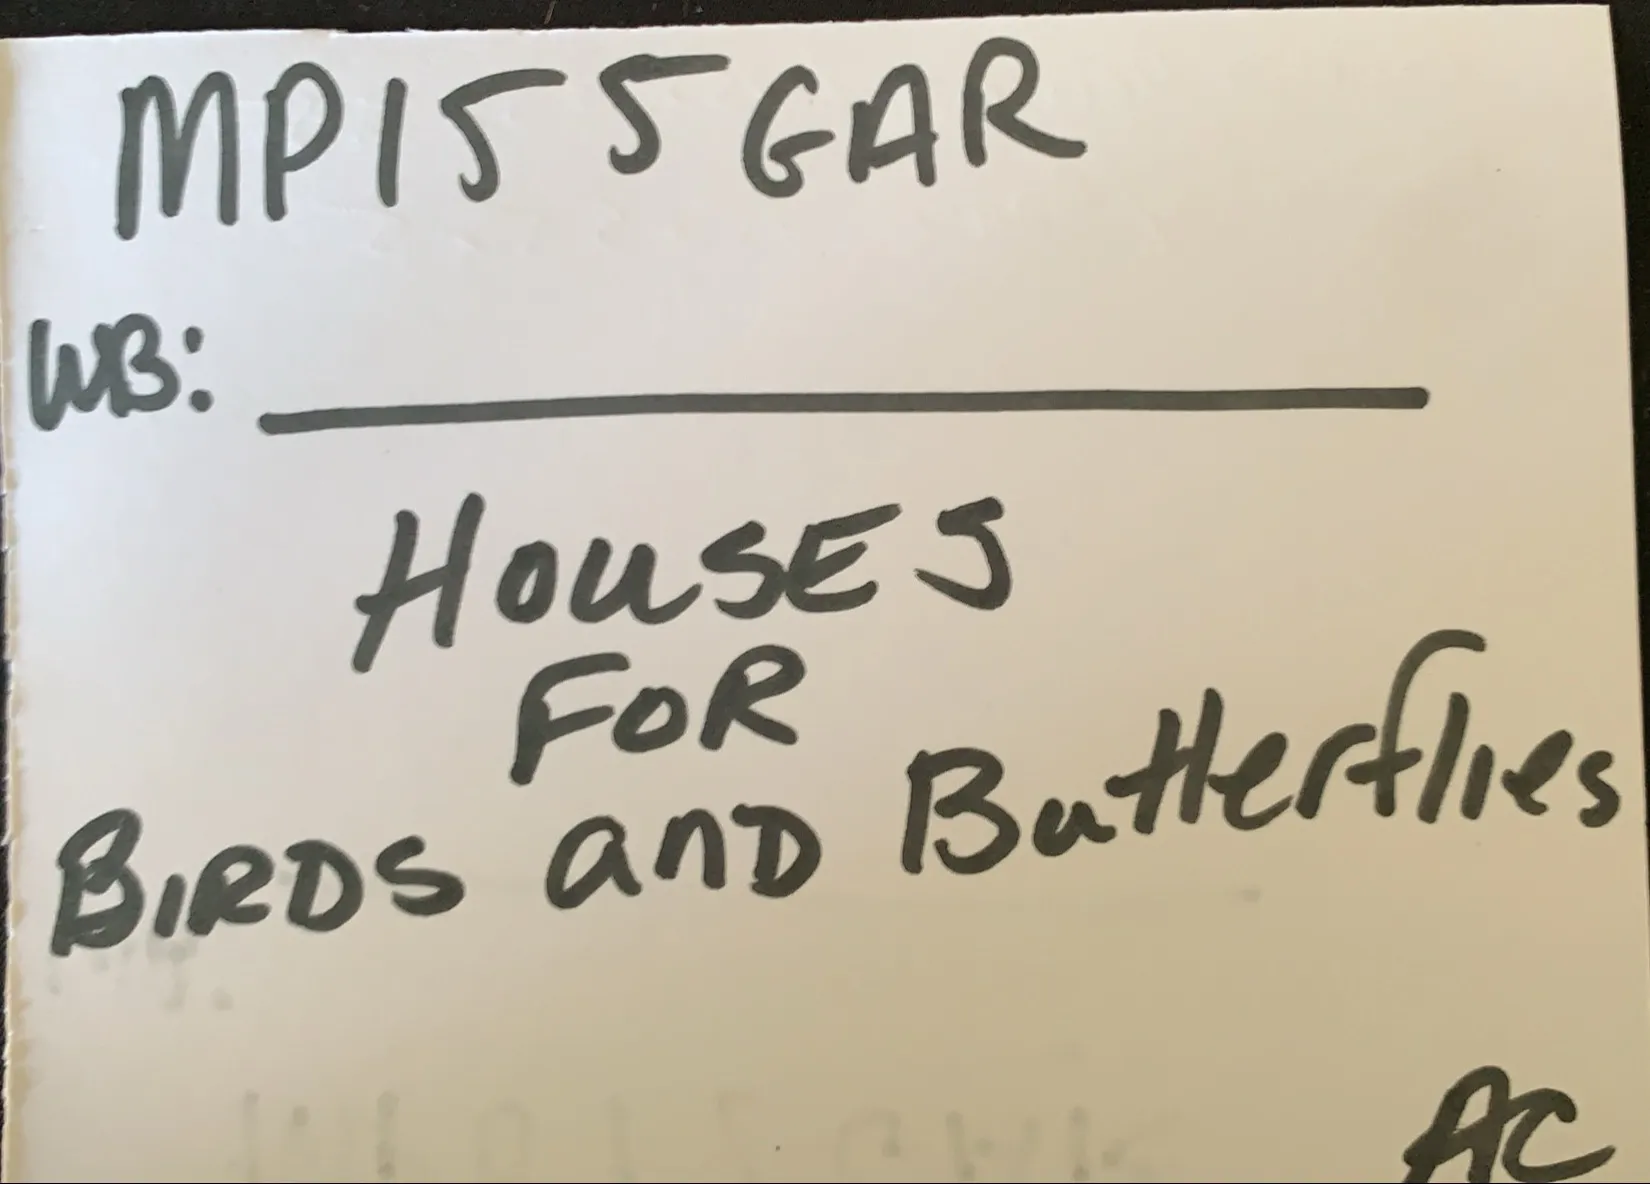 MP155GAR
WB: ____________
HOUSES
FOR
BIRDS anD Butterflies
AC